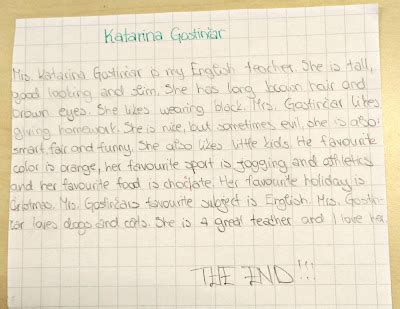 Katarina Gostinčar
Mrs. Katarina Gostinčar is my English teacher. She is tall,
good looking and slim. She has long brown hair and
brown eyes. She likes wearing black. Mrs. Gostinčar likes
giving homework. She is nice, but sometimes evil, she is also
smart, fair and funny. She also likes little kids. He favourite
color is orange, her favourite sport is jogging and athletics
and her favourite food is choclate. Her favourite holiday is
Cristmas. Mrs. Gostinčars favourite subject is English. Mrs. Gostin-
čar loves dogs and cats. She is a great teacher and I love her.
THE END!!!